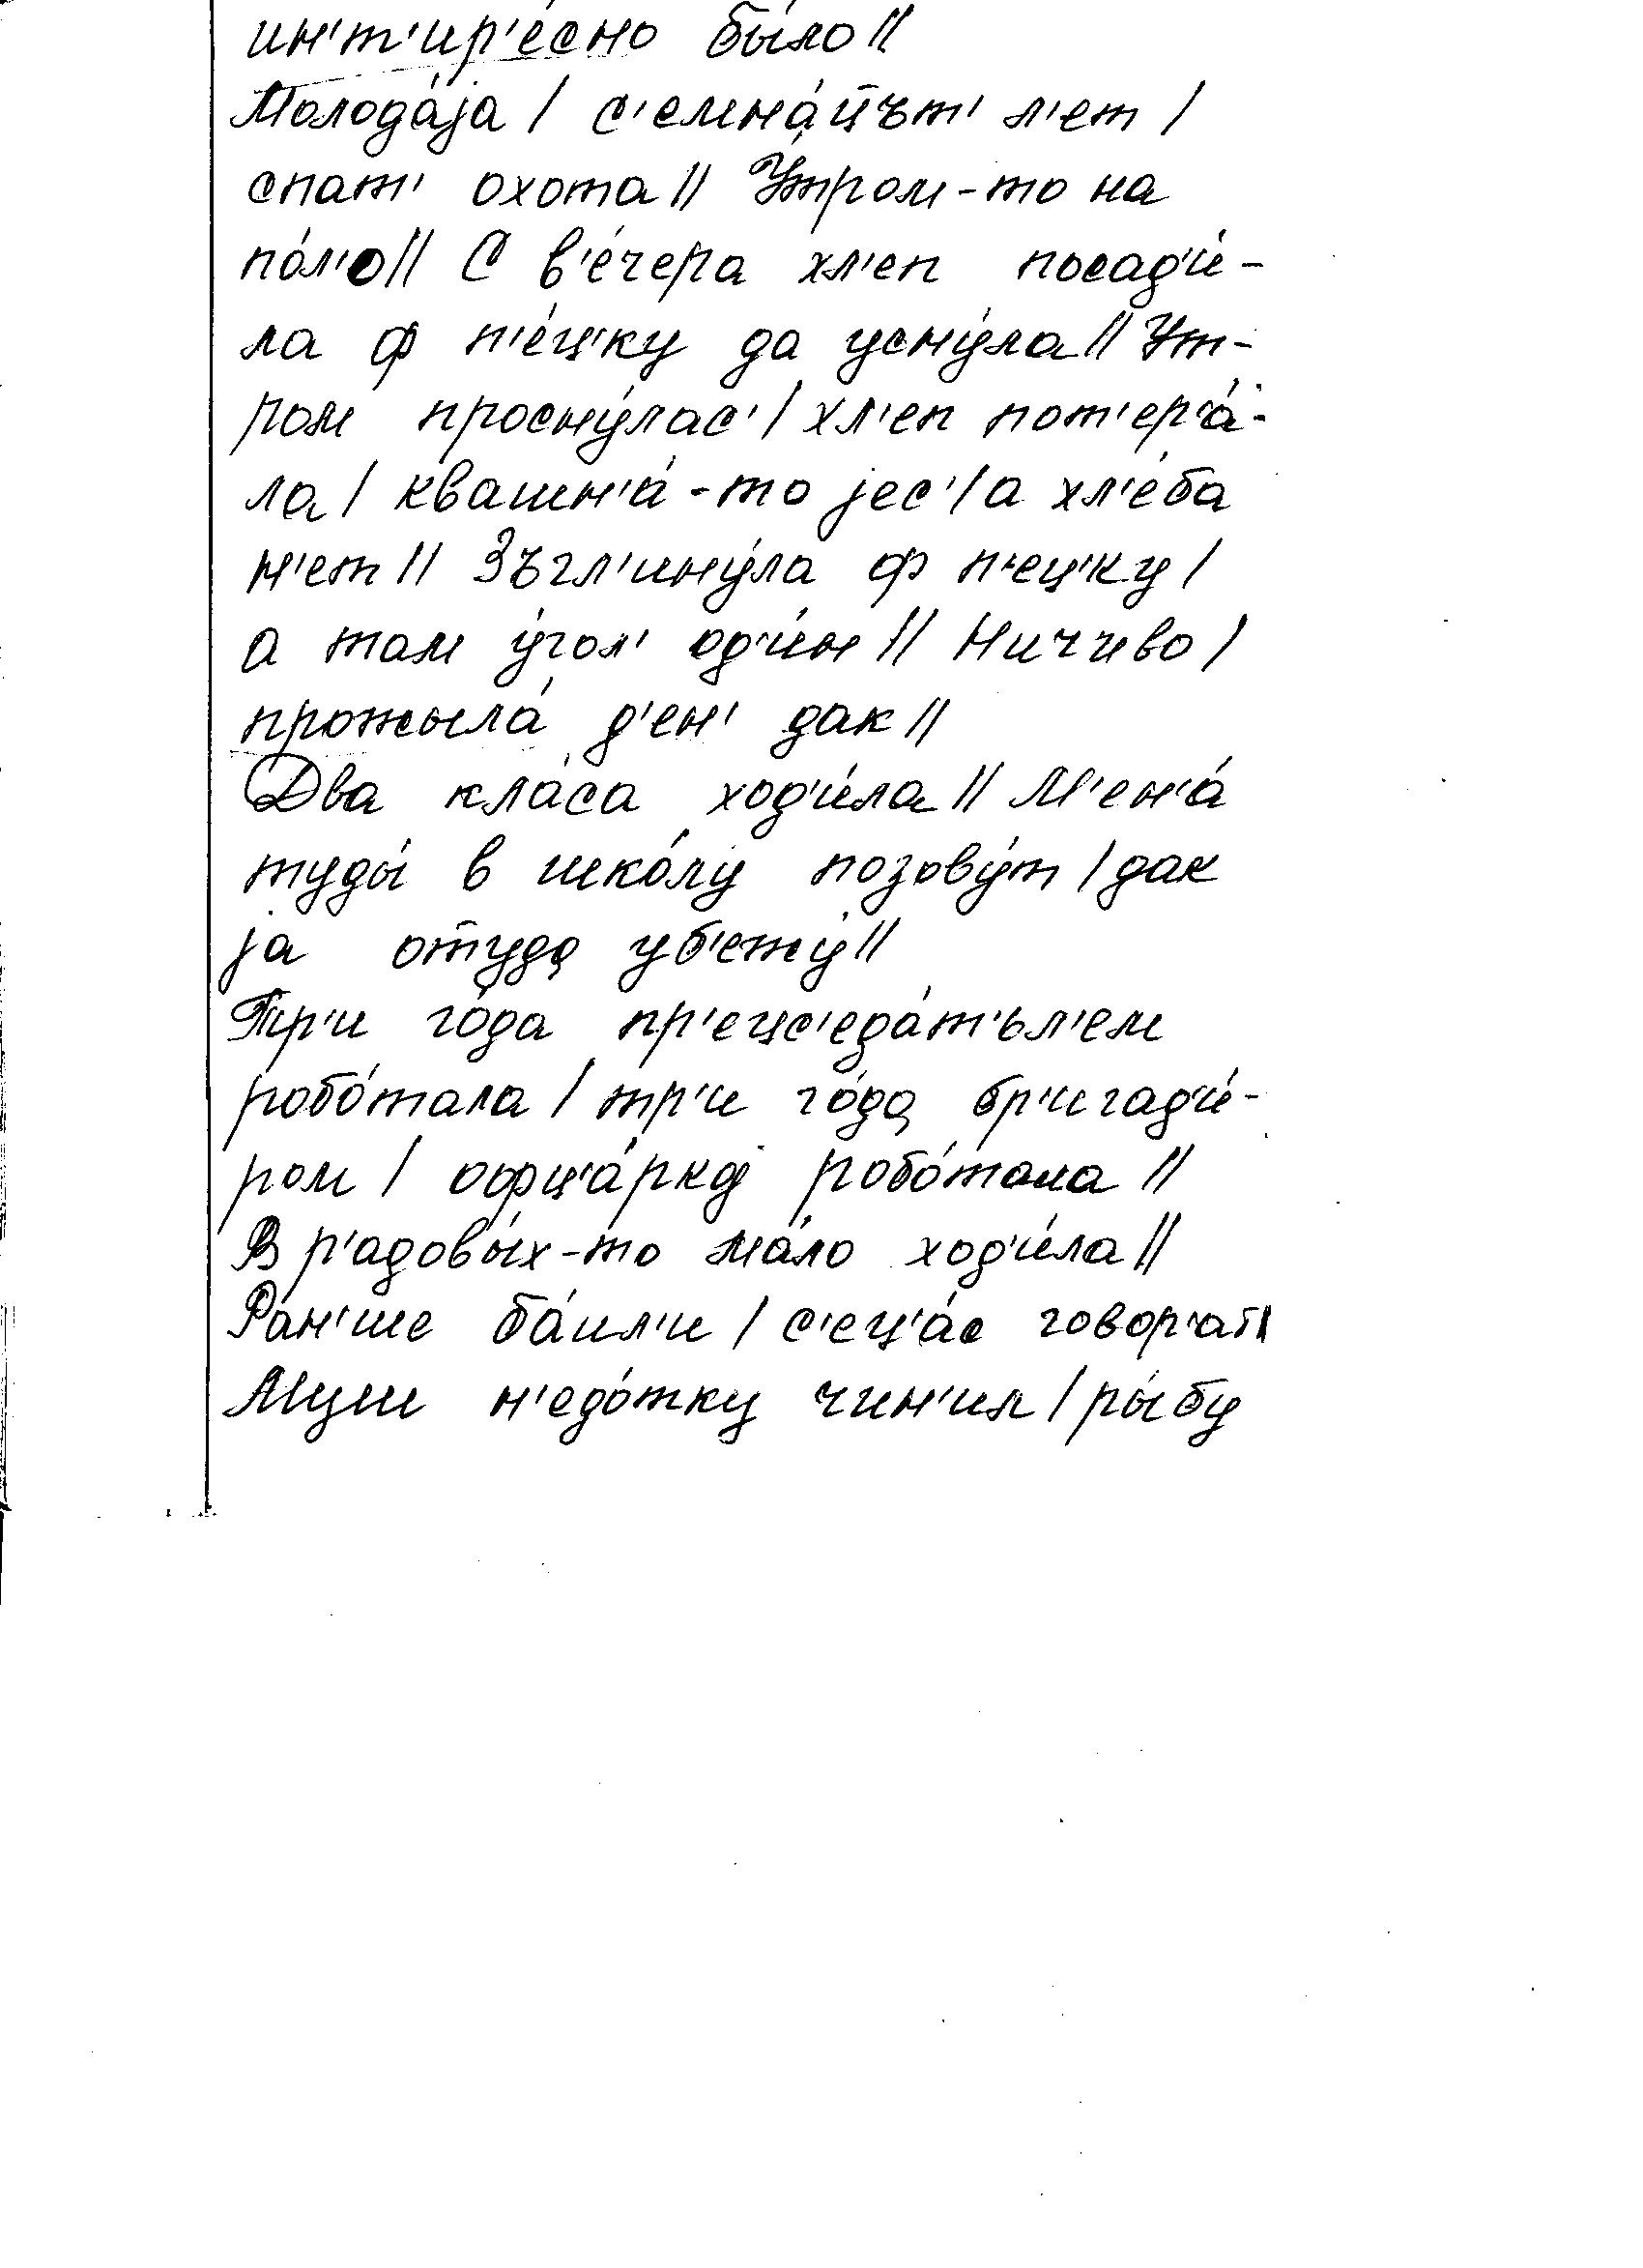 ин'т'ир'е́сно бы́ло ||
Молода́jа | с'емна́ц̄ът' л'ет |
спат' охота || У́тром-то на
по́л'о || С в'е́чера хл'еп посад'и́-
ла ф п'е́ц'ку да усну́ла || Ут-
ром просну́лас' | хл'еп пот'ер'а́-
ла | квашн'а́-то jес' | а хл'е́ба
н'ет || Зъгл'ину́ла ф п'ец'ку |
а там у́гол' од'и́н || Ниччиво |
прожыла́ д'ен' дак ||
Два кла́са ход'и́ла || М'ен'а́
туды́ в шко́лу позову́т | дак
jа от̄уда уб'ежу́ ||
Тр'и го́да пр'ецс'еда́т'ьл'ем
робо́тала | тр'и го́да бр'игад'и́-
ром | офц'а́ркоj робо́тала ||
В р'адовы́х-то ма́ло ход'и́ла ||
Ра́н'ше ба́ил'и | с'ец'а́с говор'ат |
Муш н'едо́тку чин'ил | ры́бу